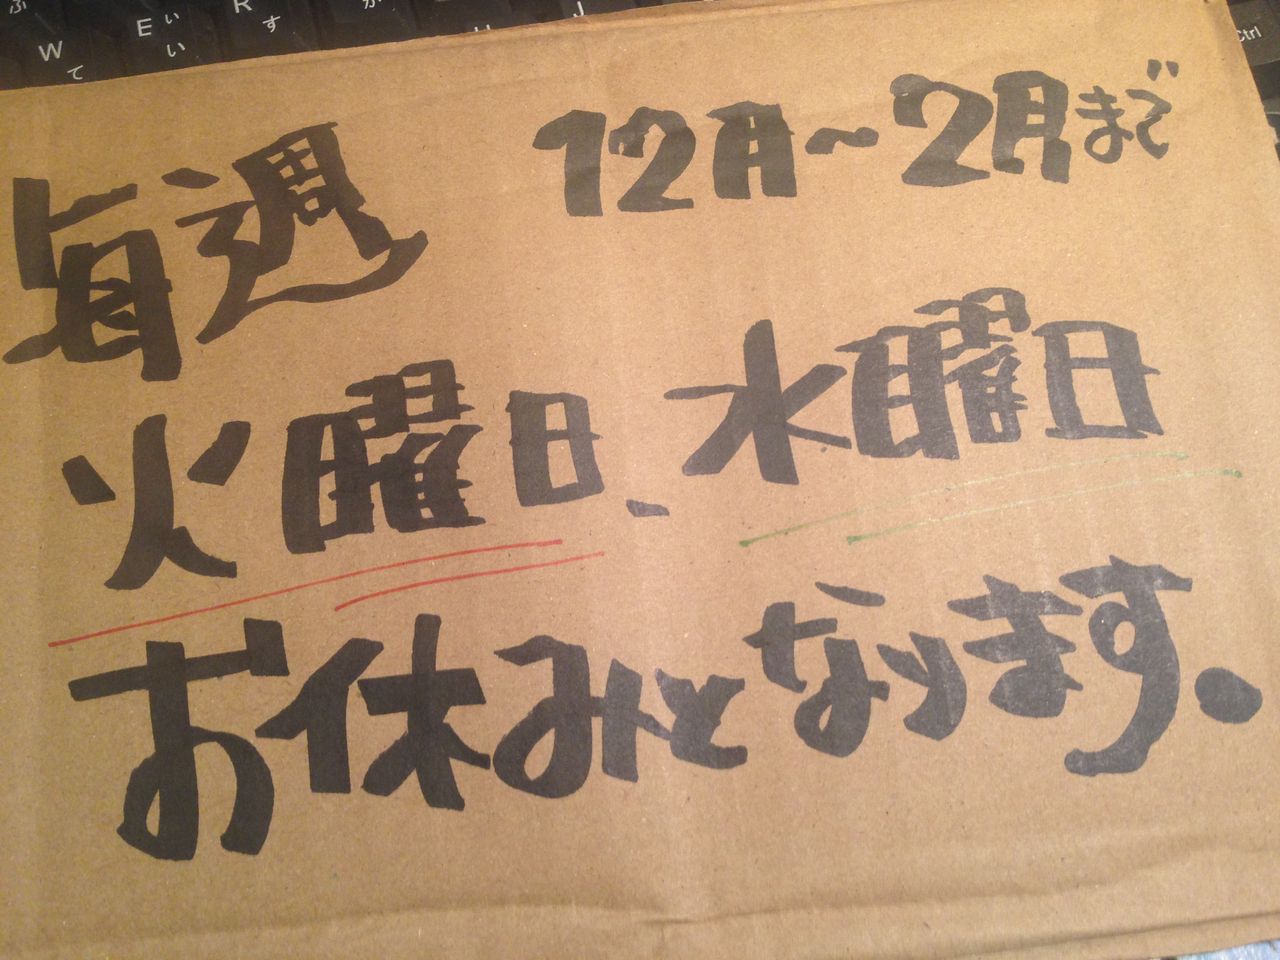 W て
E い い
R す
J
Ctrl
12月〜2月まで
毎週
火曜日、水曜日
お休みとなります。